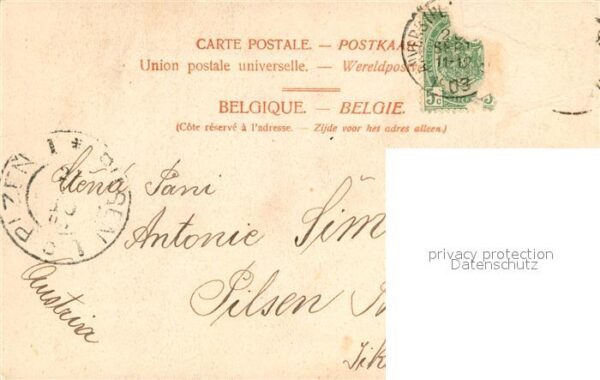 CARTE POSTALE. — POSTKAA
Union postale universelle. — Wereldpostv
BELGIQUE. — BELGIE.
(Côte réservé à l'adresse. — Zijde voor het adres alleen.)
5c
11-12
03
PLZEN 1 * PILSEN 1
Ctěná Paní
Antonie Šim
Pilsen
Austria
privacy protection
Datenschutz